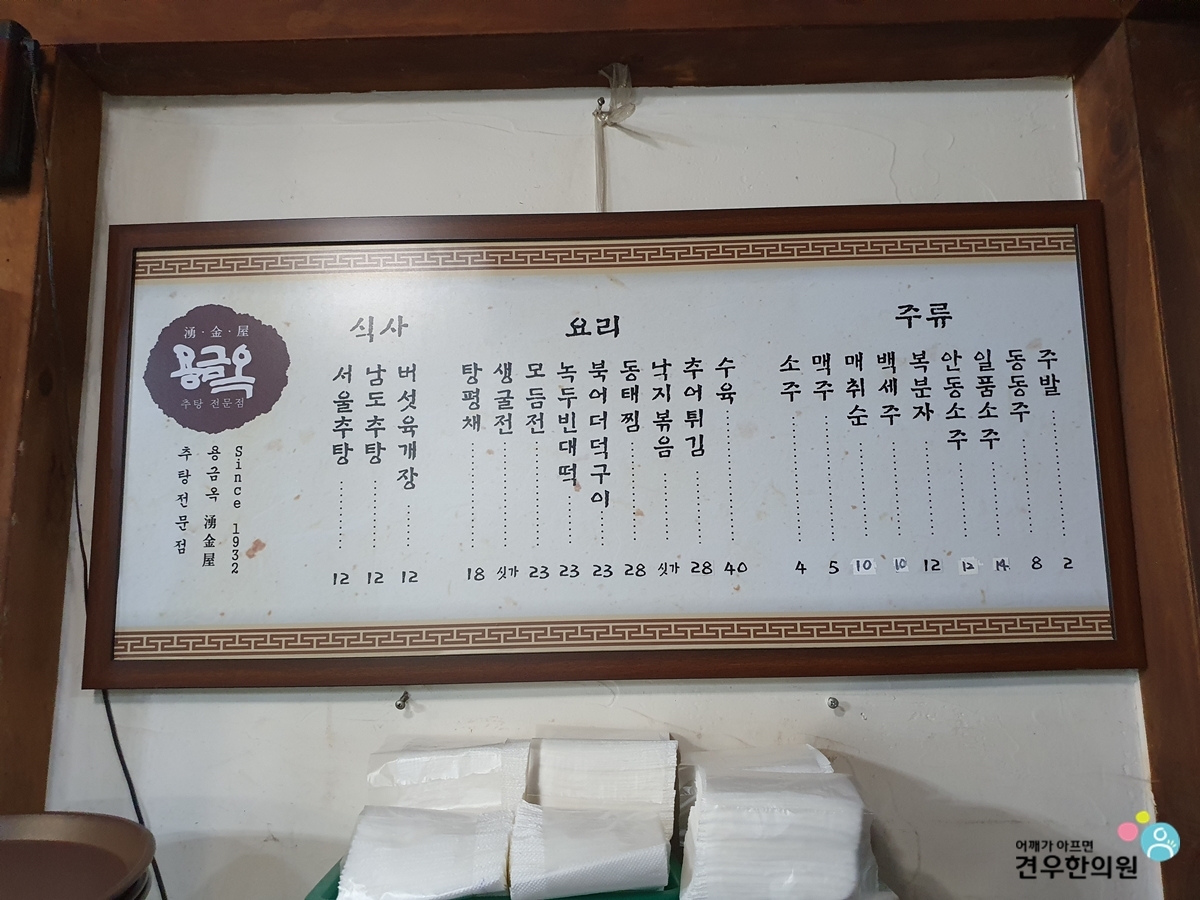 湧·金·屋
용금옥
추탕 전문점
Since 1932
용금옥 湧金屋
추탕전문점
식사
서울추탕 12
남도추탕 12
버섯육개장 12
요리
탕평채 18
생굴전 싯가
모듬전 23
녹두빈대떡 23
북어더덕구이 23
동태찜 28
낙지볶음 싯가
추어튀김 28
수육 40
주류
소주 4
맥주 5
매취순 10
백세주 10
복분자 12
안동소주 12
일품소주 14
동동주 8
주발 2
어깨가 아프면
견우한의원